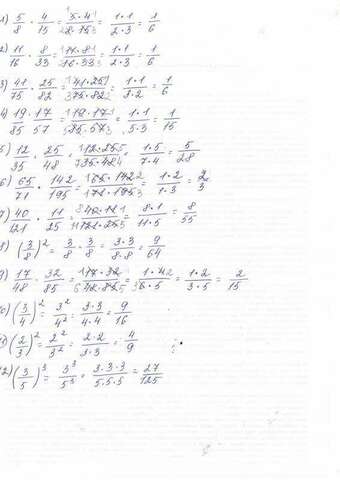 1) 5/8 · 4/15 = 5·4/8·15 = 1·1/2·3 = 1/6
2) 11/16 · 8/33 = 11·8/16·33 = 1·1/2·3 = 1/6
3) 41/75 · 25/82 = 41·25/75·82 = 1·1/3·2 = 1/6
4 19/85 · 17/57 = 19·17/85·57 = 1·1/5·3 = 1/15
5) 12/35 · 25/48 = 12·25/35·48 = 1·5/7·4 = 5/28
6) 65/71 · 142/195 = 65·142/71·195 = 1·2/1·3 = 2/3
7) 40/121 · 11/25 = 40·11/121·25 = 8·1/11·5 = 8/55
8) (3/8)² = 3/8 · 3/8 = 3·3/8·8 = 9/64
9) 17/48 · 32/85 = 17·32/48·85 = 1·2/3·5 = 2/15
10) (3/4)² = 3²/4² = 3·3/4·4 = 9/16
11) (2/3)² = 2²/3² = 2·2/3·3 = 4/9
12) (3/5)³ = 3³/5³ = 3·3·3/5·5·5 = 27/125